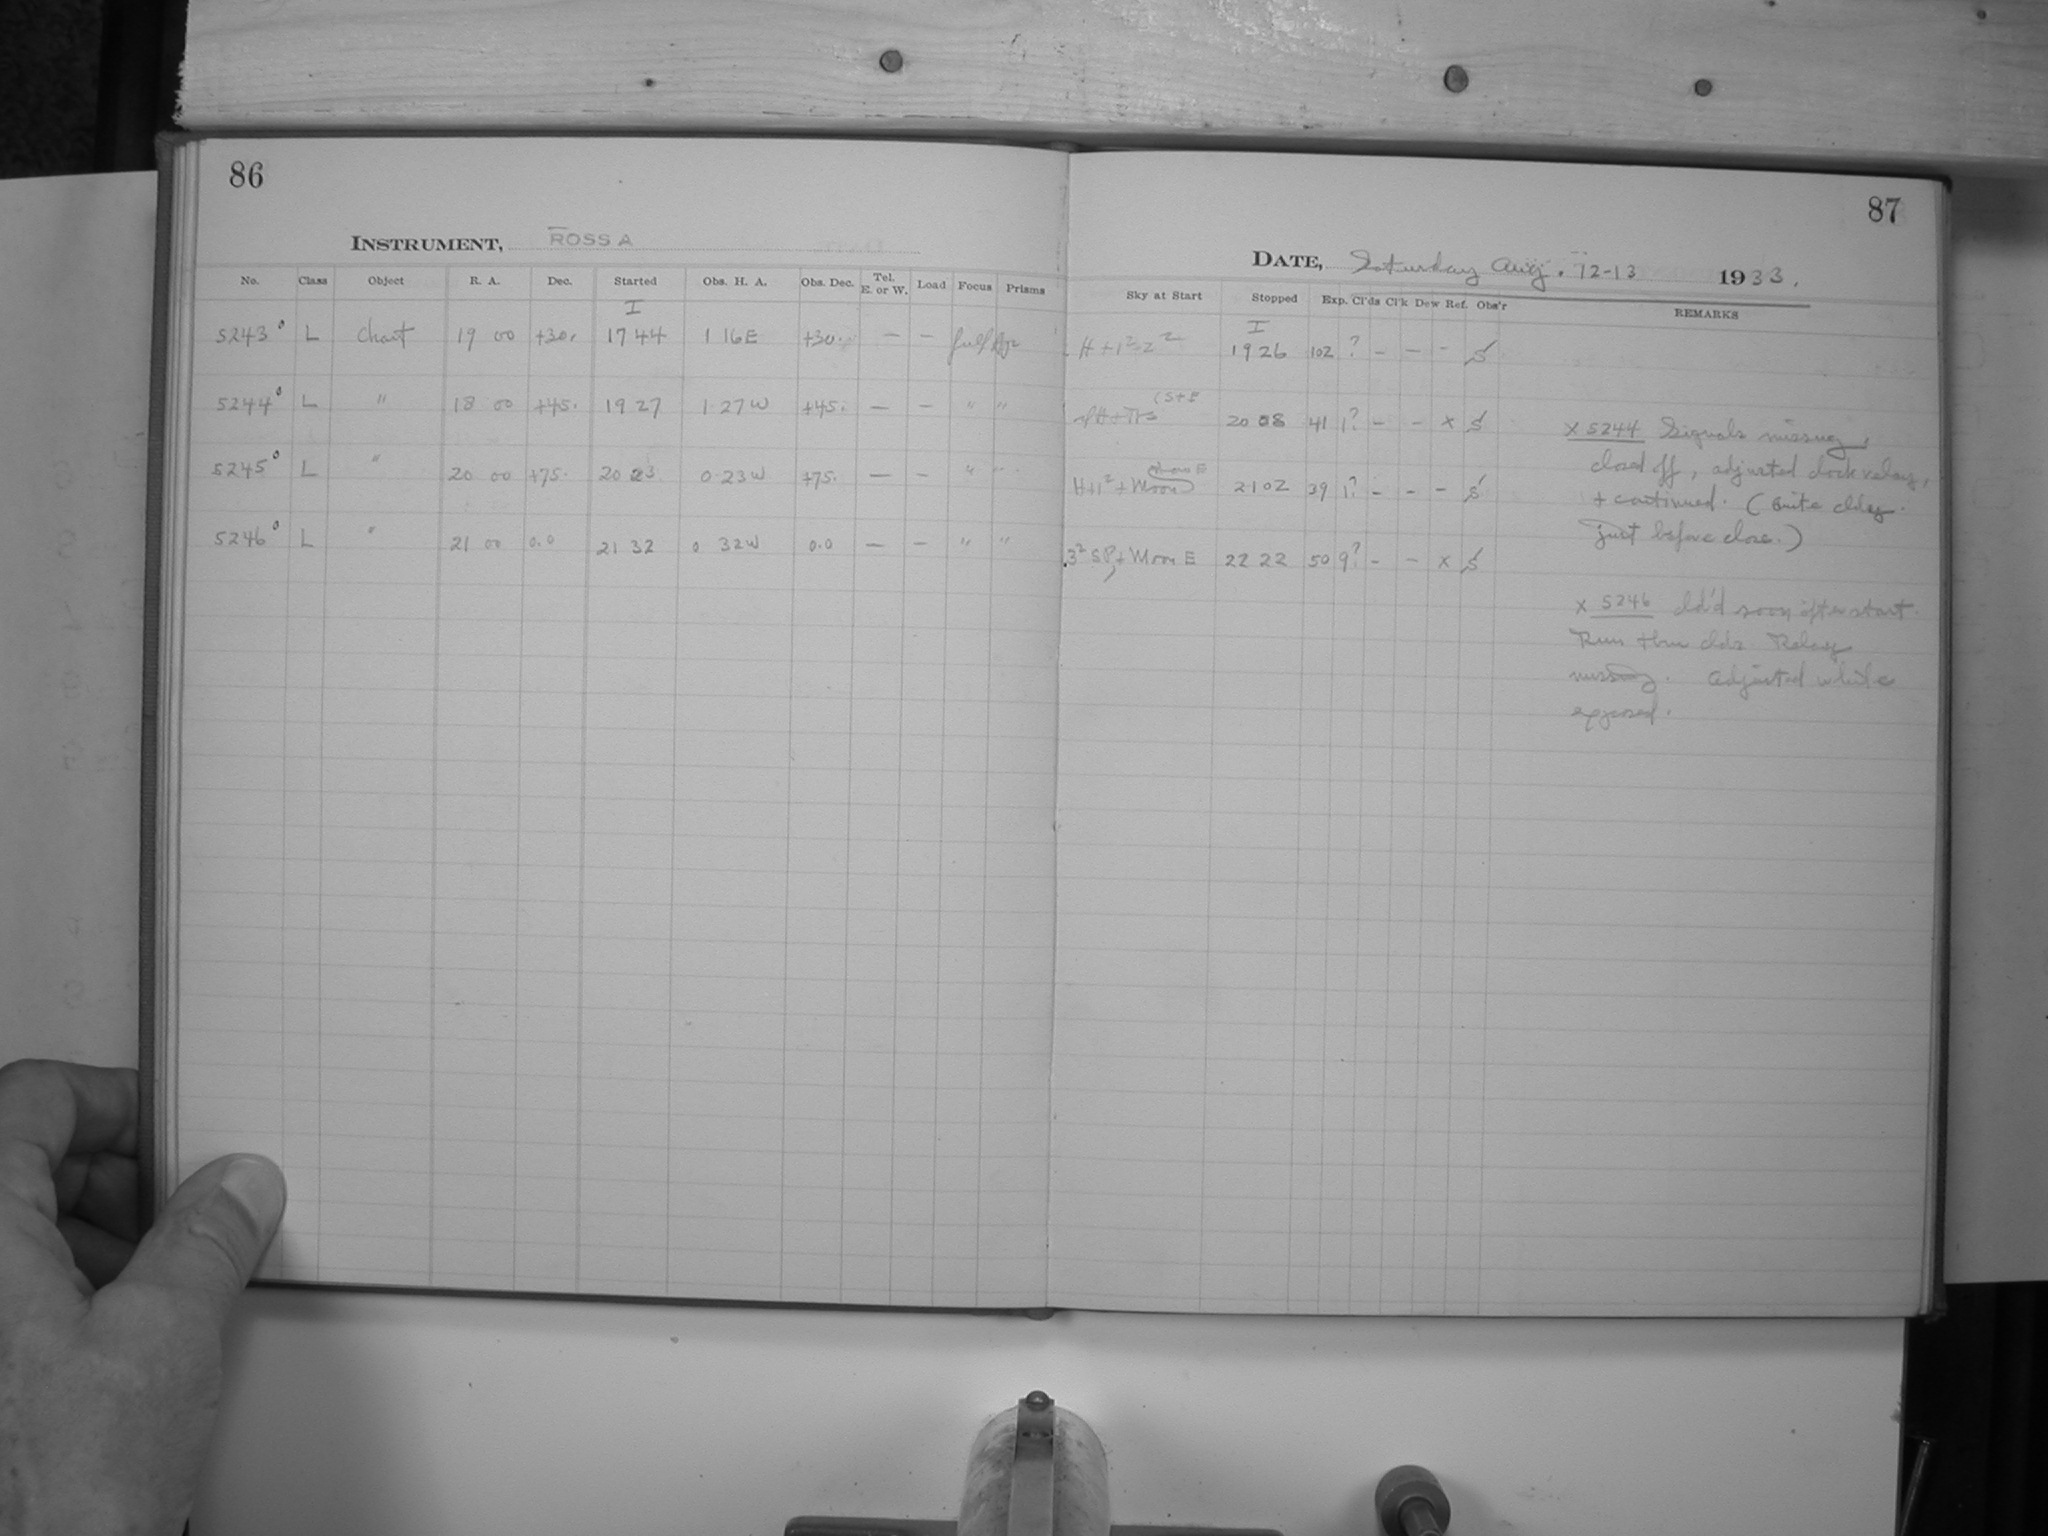 86
INSTRUMENT, ROSS A
No. Class Object R. A. Dec. Started Obs. H. A. Obs. Dec. Tel. E. or W. Load Focus Prisms
I
5243° L Chart 19 00 +30. 17 44 1 16E +30. — — full
5244° L " 18 00 +45. 19 27 1 27W +45. — — " "
5245° L " 20 00 +75. 20 23 0 23W +75. — — " "
5246° L " 21 00 0.0 21 32 0 32W 0.0 — — " "
87
DATE, Saturday Aug. 12-13 1933.
Sky at Start Stopped Exp. Cl'ds Cl'k Dew Ref. Obs'r REMARKS
I
19 26 102 ? – – –
20 08 41 1? – – x
H+1² + Moon 21 02 39 1? – – –
3² SP, + Moon E 22 22 50 9? – – x
x 5244 Signals missing,
closed off, adjusted clock relay,
+ continued. (Quite cldy.
just before close.)
x 5246 Cld'd soon after start.
Run thru clds. Relay
missing. Adjusted while
exposed.